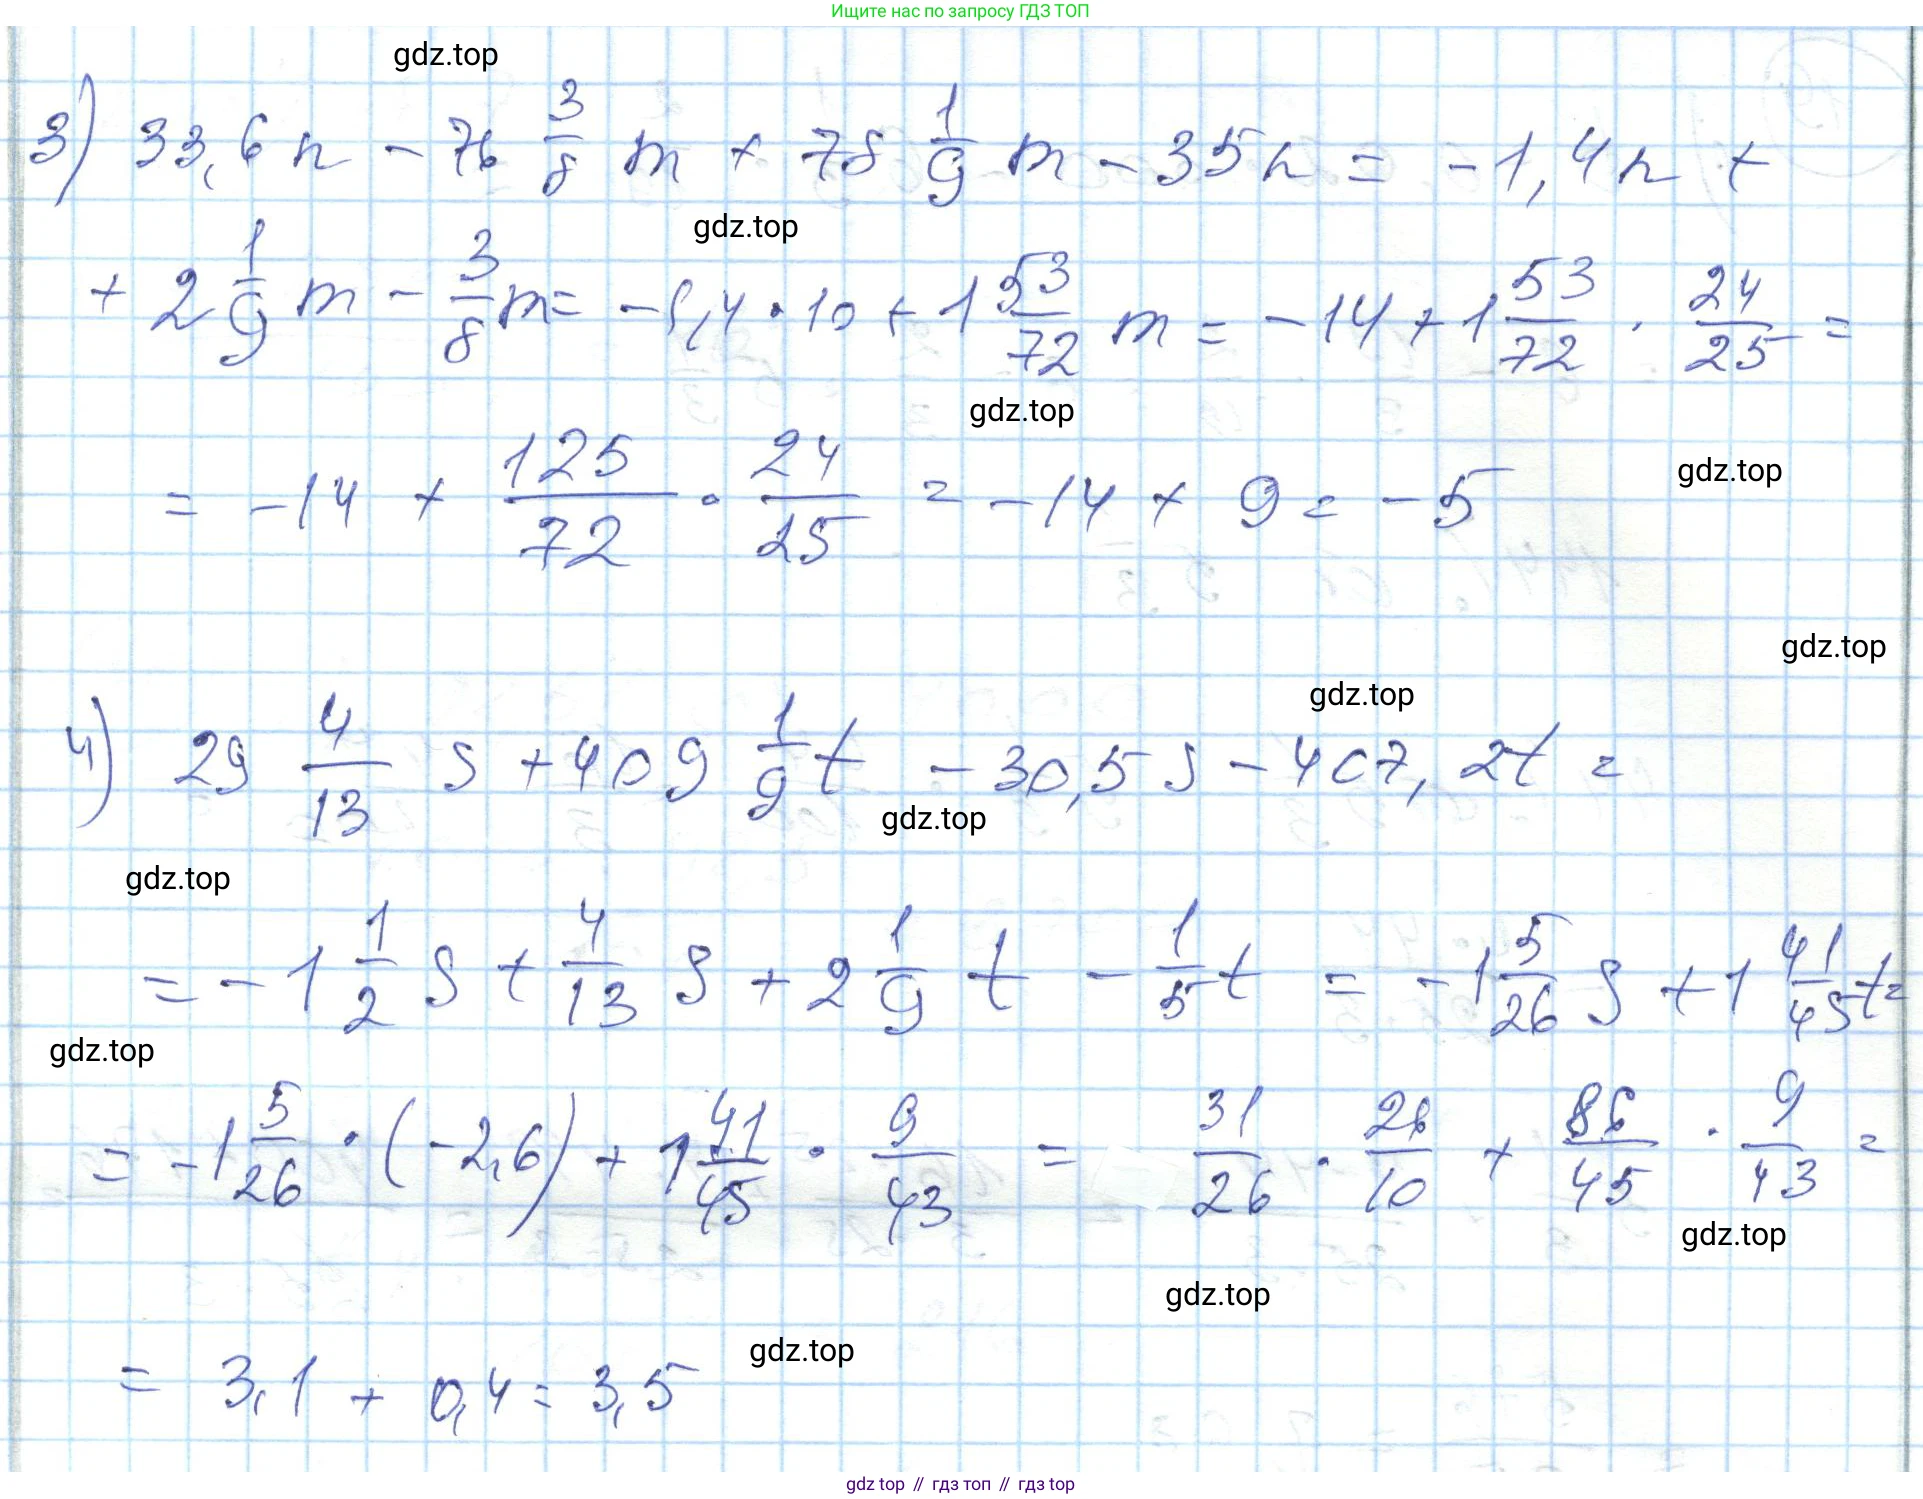 Ищите нас по запросу ГДЗ ТОП
gdz.top
3) 33,6n - 76 3/8 m + 78 1/9 m - 35n = -1,4n +
gdz.top
+ 2 1/9 m - 3/8 m = -1,4 · 10 + 1 53/72 m = -14 + 1 53/72 · 24/25 =
gdz.top
= -14 + 125/72 · 24/25 = -14 + 9 = -5
gdz.top
gdz.top
gdz.top
4) 29 4/13 s + 409 1/9 t - 30,5s - 407,2t =
gdz.top
gdz.top
= -1 1/2 s + 4/13 s + 2 1/9 t - 1/5 t = -1 5/26 s + 1 41/45 t =
gdz.top
= -1 5/26 · (-2,6) + 1 41/45 · 9/43 = 31/26 · 26/10 + 86/45 · 9/43 =
gdz.top
gdz.top
gdz.top
= 3,1 + 0,4 = 3,5
gdz top // гдз топ // гдз top